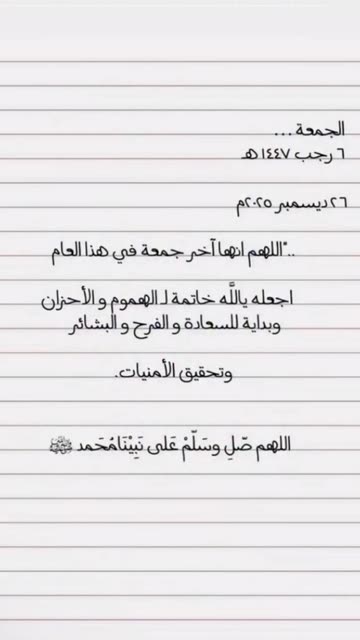 الجمعة ...
٦ رجب ١٤٤٧هـ
٢٦ ديسمبر ٢٠٢٥م
.."اللهم انها آخر جمعة في هذا العام
اجعله ياللَّه خاتمة لـ الهموم و الأحزان
وبداية للسعادة و الفرح و البشائر
وتحقيق الأمنيات.
اللهم صّلِ وسَلّمْ عَلى نَبِيْنَا مُحَمد ﷺ